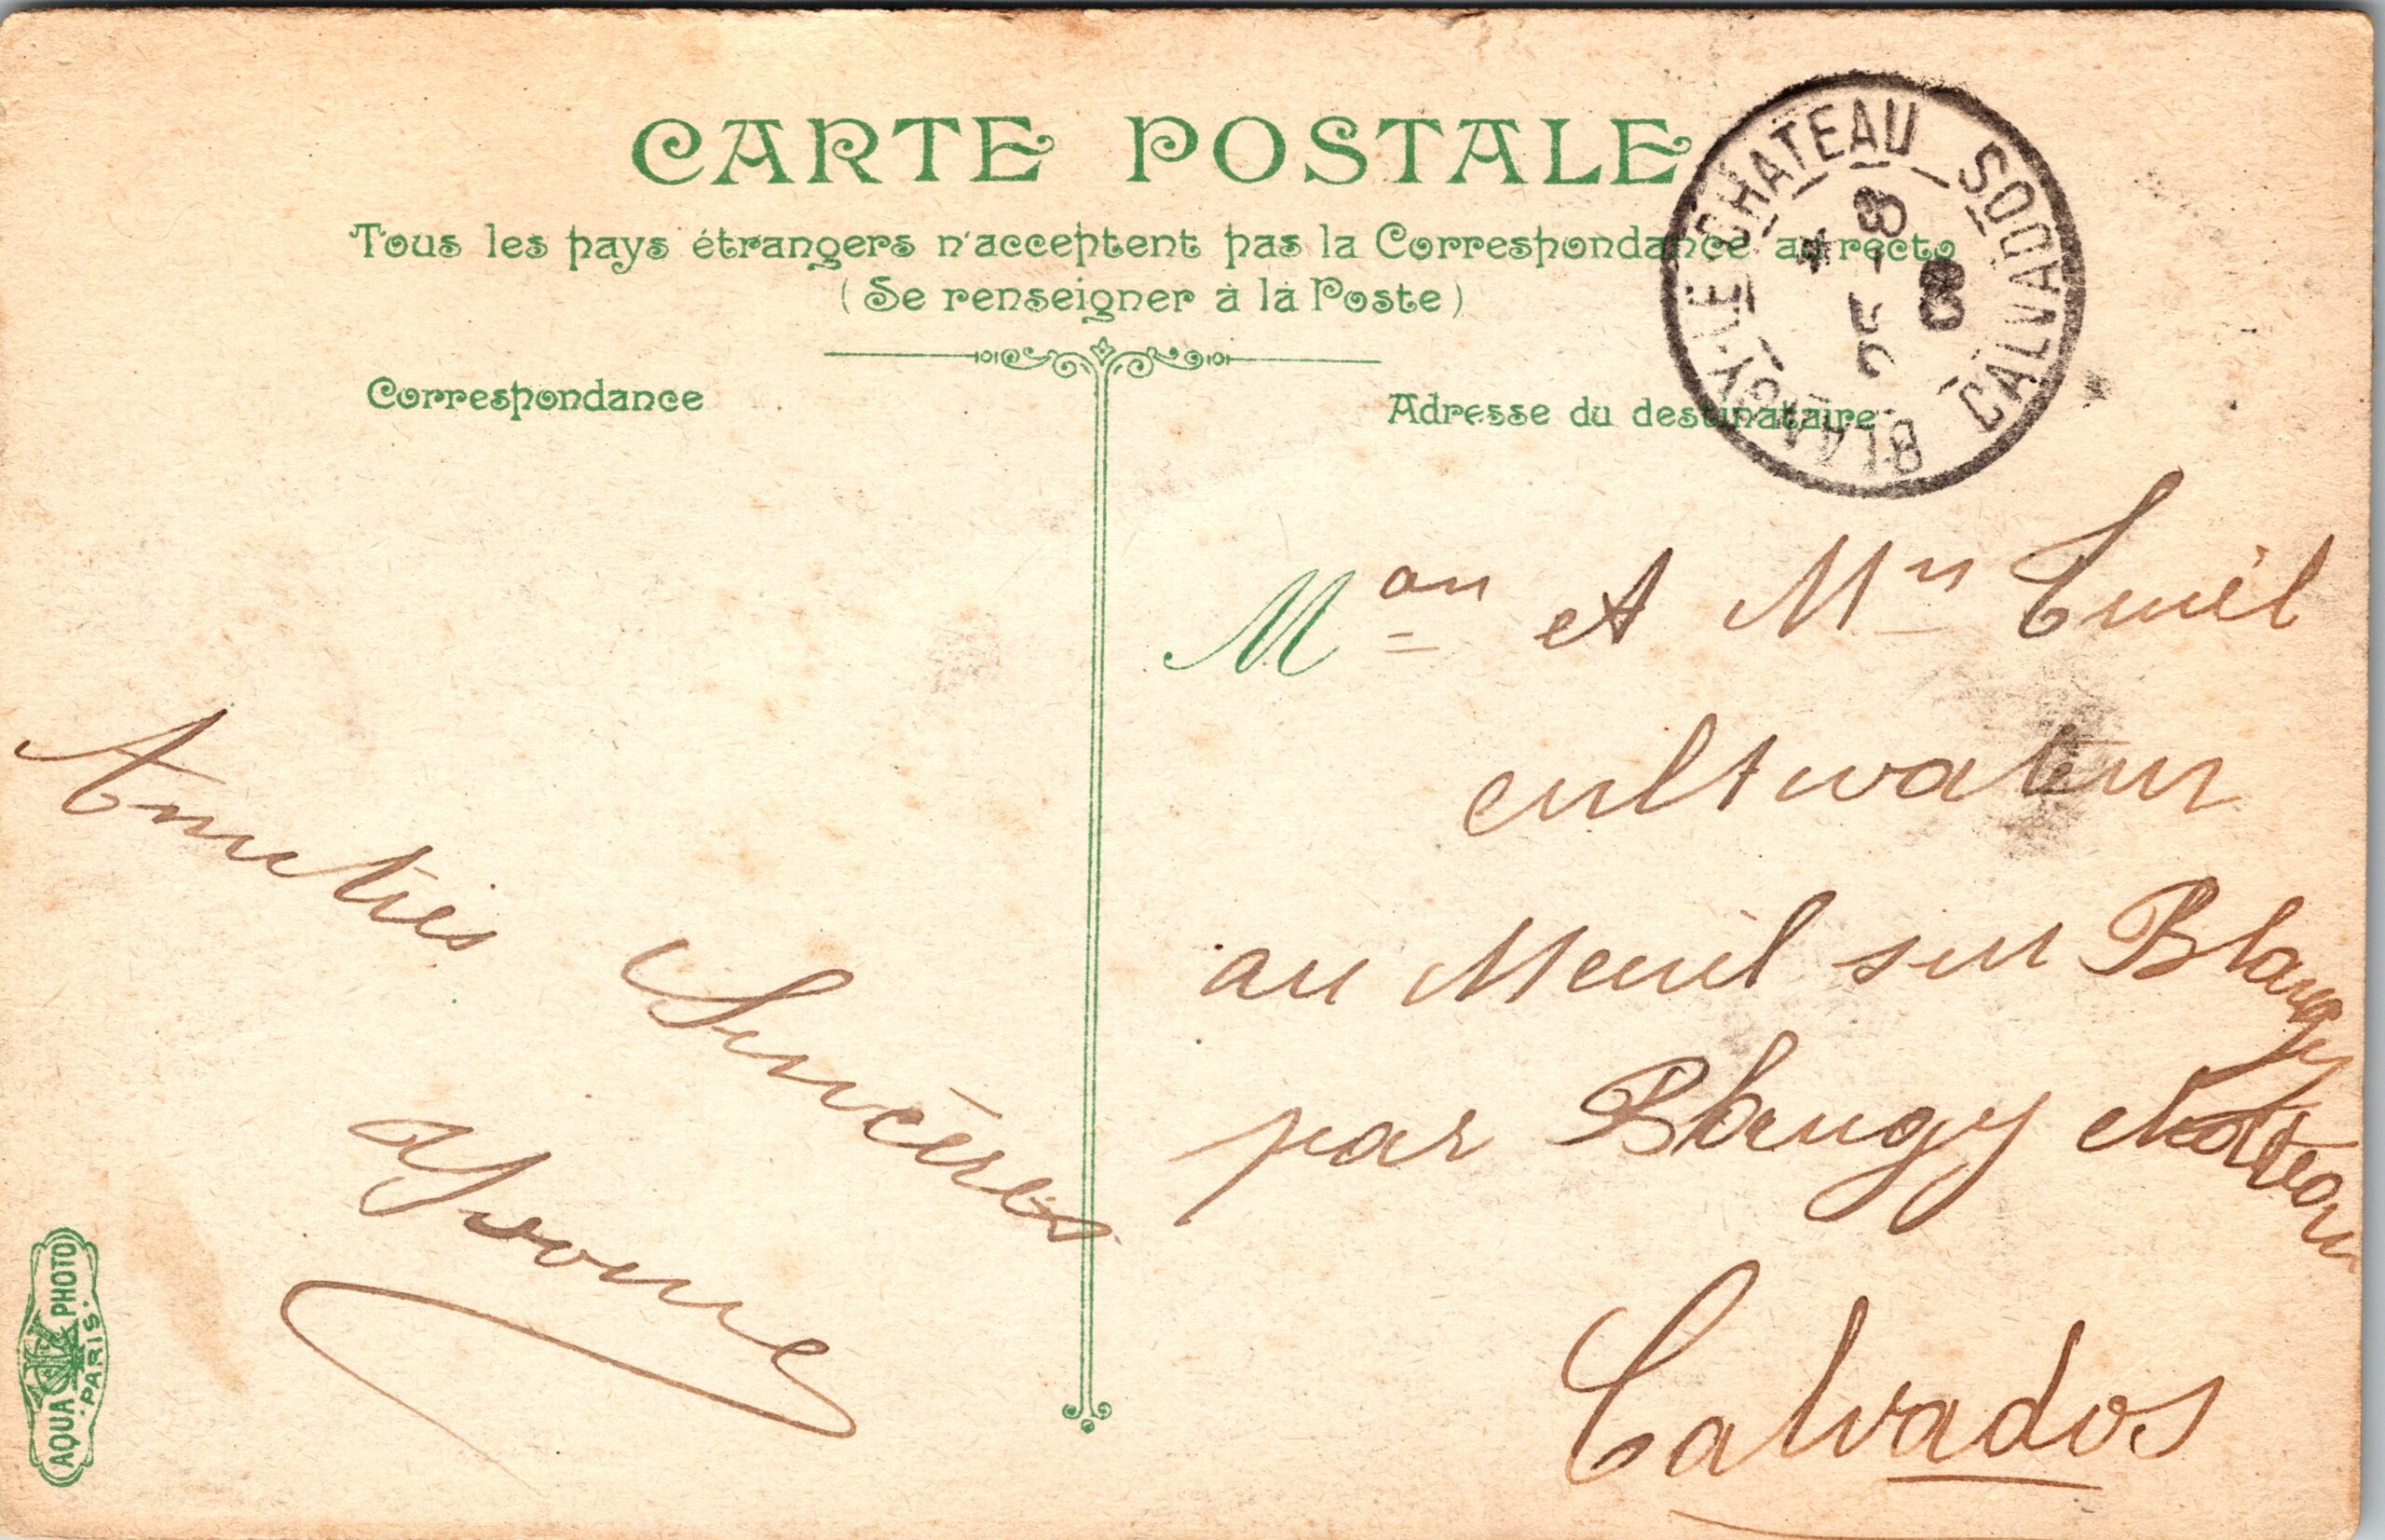 CARTE POSTALE
Tous les pays étrangers n'acceptent pas la Correspondance au recto
(Se renseigner à la Poste)
Correspondance
Adresse du destinataire
BLANGY-LE-CHATEAU
CALVADOS
8 - 5
08
Amitiés Sincères
Yvonne
et
cultivateur
au Menil sur Blangy
par Blangy chateau
Calvados
AQUA PHOTO
PARIS